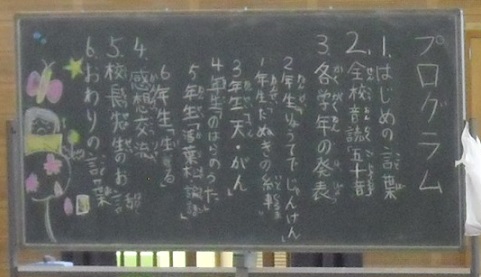 プログラム
1. はじめの言葉
2. 全校音読「五十音」
3. 各学年の発表
2年生「いうてでじゃんけん」
1年生「たぬきの糸車」
3年生「天・がん」
4年生「のはらのうた」
5年生
6年生「生きる」
4. 感想交流
5. 校長先生のお話
6. おわりの言葉